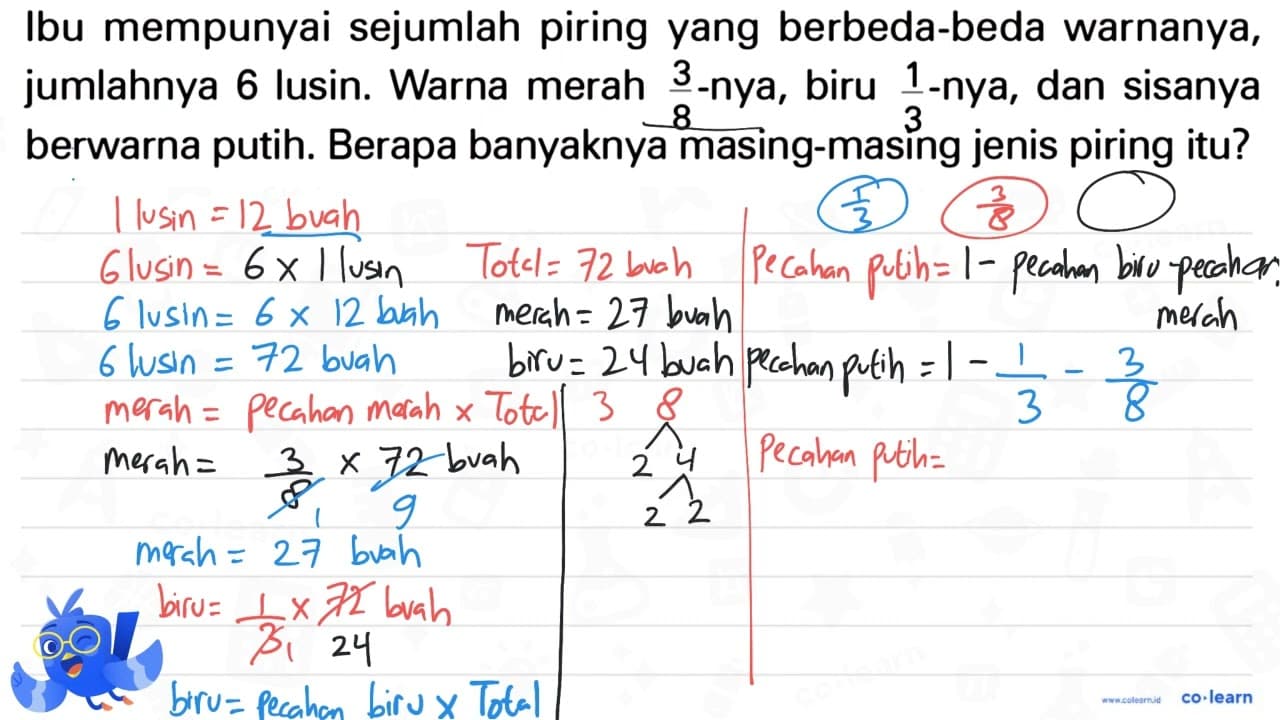 Ibu mempunyai sejumlah piring yang berbeda-beda warnanya,
jumlahnya 6 lusin. Warna merah 3/8-nya, biru 1/3-nya, dan sisanya
berwarna putih. Berapa banyaknya masing-masing jenis piring itu?
1 lusin = 12 buah
6 lusin = 6 × 1 lusin
6 lusin = 6 × 12 buah
6 lusin = 72 buah
merah = pecahan merah × Total
merah = 3/8 × 72 buah
1 9
merah = 27 buah
biru = 1/3 × 72 buah
1 24
biru = pecahan biru × Total
Total = 72 buah
merah = 27 buah
biru = 24 buah
3 8
2 4
2 2
1/3 3/8
Pecahan putih = 1 - pecahan biru - pecahan
merah
pecahan putih = 1 - 1/3 - 3/8
Pecahan putih =
www.colearn.id co·learn